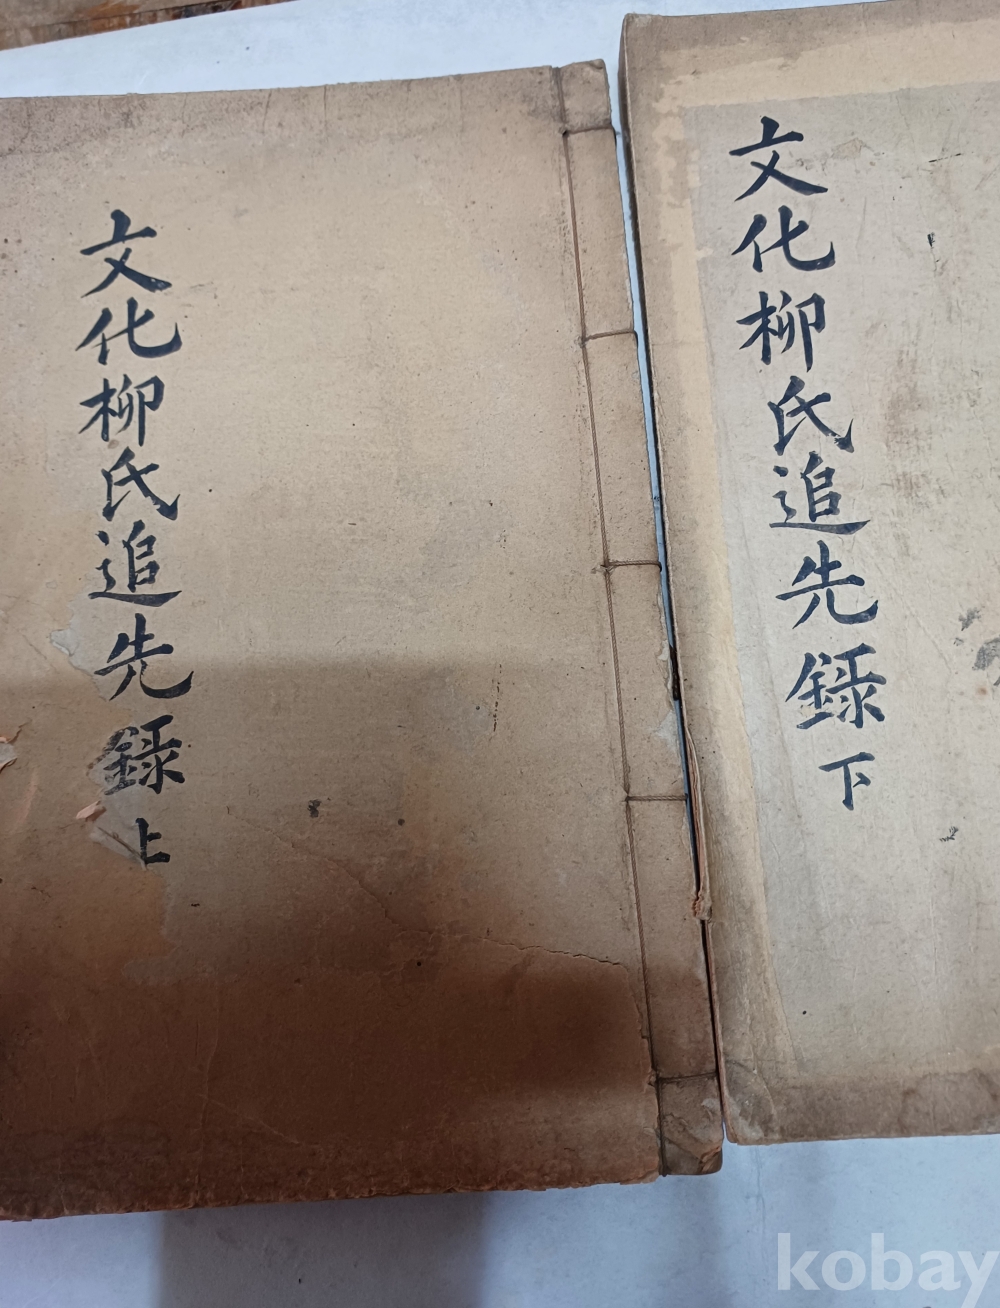 文化柳氏追先録上
文化柳氏追先録下
kobay